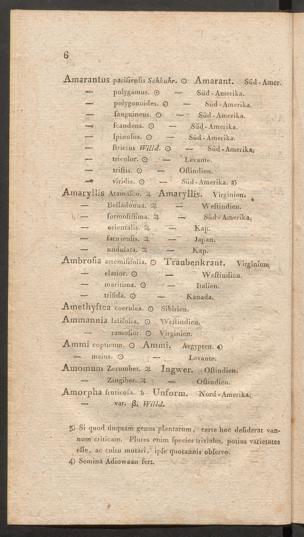 6
Amarantus paciſienſis Schkuhr. ☉ Amarant. Süd-Amer.
— polygamus. ☉ — Süd-Amerika.
— polygonoides. ☉ — Süd-Amerika.
— ſanguineus. ☉ — Süd-Amerika.
— ſcandens. ☉ — Süd-Amerika.
— ſpinoſus. ☉ — Süd-Amerika.
— ſtrictus Willd. ☉ — Süd-Amerika.
— tricolor. ☉ — Levante.
— triſtis. ☉ — Oſtindien.
— viridis. ☉ — Süd-Amerika. 3)
Amaryllis Atamaſco. ♃ Amaryllis. Virginien.
— Belladonna. ♃ — Weſtindien.
— formoſiſſima. ♃ — Süd-Amerika.
— orientalis. ♃ — Kap.
— ſarnienſis. ♃ — Japan.
— undulata. ♃ — Kap.
Ambroſia artemiſifolia. ☉ Traubenkraut. Virginien.
— elatior. ☉ — Weſtindien.
— maritima. ☉ — Italien.
— trifida. ☉ — Kanada.
Amethyſtea coerulea. ☉ Sibirien.
Ammannia latifolia. ☉ Weſtindien.
— ramoſior. ☉ Virginien.
Ammi copticum. ☉ Ammi. Aegypten. 4)
— maius. ☉ — Levante.
Amomum Zerumbet. ♃ Ingwer. Oſtindien.
— Zingiber. ♃ — Oſtindien.
Amorpha fruticoſa. ♄ Unform. Nord-Amerika.
— var. β. Willd.
3) Si quod unquam genus plantarum, certe hoc deſiderat vannum criticam. Plures enim ſpecies triviales, potius varietates
eſſe, ac cultu mutari, ipſe quotannis obſervo.
4) Semina Adiowaen fert.